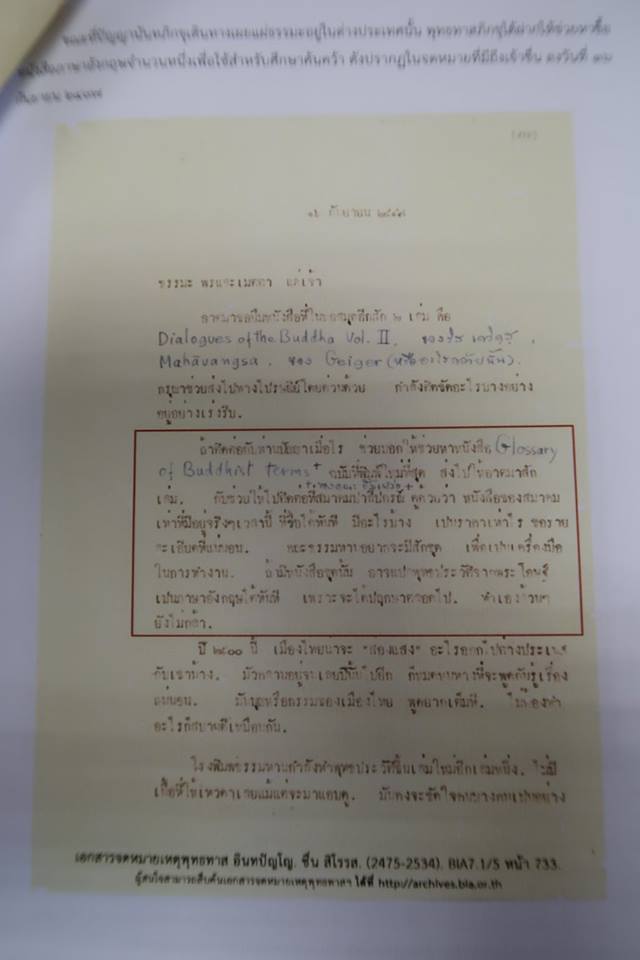 ขณะที่ปัญญานันทภิกขุเดินทางเผยแผ่ธรรมะอยู่ในต่างประเทศนั้น พุทธทาสภิกขุได้ฝากให้ช่วยหาซื้อ
หนังสือภาษาอังกฤษจำนวนหนึ่งเพื่อใช้สำหรับศึกษาค้นคว้า ดังปรากฏในจดหมายที่มีถึงเจ้าชื่น ลงวันที่ ๑๖
กันยายน ๒๔๙๗
กันยายน ๒๔๙๗
ธรรมะ พรและเมตตา แด่เจ้า
อาตมาขอยืมหนังสือที่ในหอสมุดอีกสัก ๒ เล่ม คือ
Dialogues of the Buddha Vol. II, ของริส เดวิดส์,
Mahāvangsa, ของ Geiger (หรืออะไรคล้ายนั้น).
กรุณาช่วยส่งไปทางไปรษณีย์โดยด่วนด้วย กำลังติดขัดอะไรบางอย่าง
อยู่อย่างเร่งรีบ.
ถ้าติดต่อกับท่านปัญญาเมื่อไร ช่วยบอกให้ช่วยหาหนังสือ Glossary
of Buddhist terms + ฉบับที่พิมพ์ใหม่ที่สุด ส่งไปให้อาตมาสัก
เล่ม. กับช่วยให้ไปติดต่อที่สมาคมบาลีปกรณ์ ดูด้วยว่า หนังสือของสมาคม
เท่าที่มีอยู่จริงๆเวลานี้ ที่ซื้อได้ทันที มีอะไรบ้าง เปนราคาเท่าไร ขอราย
ละเอียดที่แน่นอน. คณะธรรมทานอยากจะมีสักชุด เพื่อเปนเครื่องมือ
ในการทำงาน. ถ้ามีหนังสือชุดนั้น อาจแปลพุทธประวัติจากพระโอษฐ์
เปนภาษาอังกฤษได้ทันที เพราะจะได้ปฤกษาตลอดไป. ทำเองล้วนๆ
ยังไม่กล้า.
ปี ๒๕๐๐ นี้ เมืองไทยน่าจะ "ส่องแสง" อะไรออกไปต่างประเทศ
กับเขาบ้าง. มัวคลานอยู่จนเลยปีนี้ไปอีก ก็หมดหนทางที่จะพูดกันรู้เรื่อง
แน่นอน. มันบุญหรือกรรมของเมืองไทย พูดยากเต็มที. ไม่ต้องทำ
อะไรก็สบายดีเหมือนกัน.
โรงพิมพ์ธรรมทานกำลังทำพุทธประวัติขึ้นเล่มใหม่อีกเล่มหนึ่ง. ไม่มี
เนื้อที่ให้เทวดาเลยแม้แต่จะมาแอบดู. มันคงจะขัดใจคนบางคนเปนอย่าง
เอกสารจดหมายเหตุพุทธทาส อินทปัญโญ. ชื่น สิโรรส. (2475-2534). BIA7.1/5 หน้า 733.
ผู้สนใจสามารถสืบค้นเอกสารจดหมายเหตุพุทธทาสฯ ได้ที่ http://archives.bia.or.th